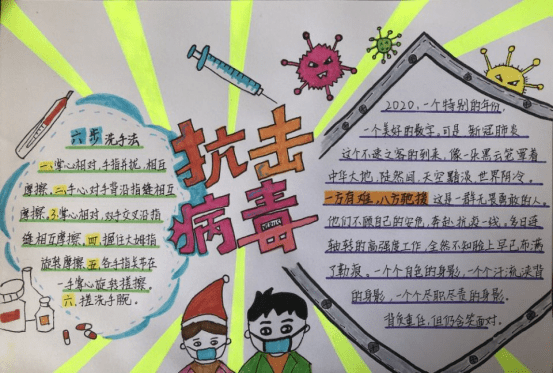 抗击
病毒
六步洗手法
一.掌心相对,手指并拢,相互
摩擦.二.手心对手背沿指缝相互
摩擦.3.掌心相对,双手交叉沿指
缝相互摩擦.四.握住大拇指
旋转摩擦.五.各手指尖并在
一手掌心旋转搓擦.
六.搓洗手腕.
2020,一个特别的年份,
一个美好的数字,可是新冠肺炎
这个不速之客的到来,像一朵黑云笼罩着
中华大地,陡然间,天空黯淡,世界阴冷.
一方有难,八方驰援.这是一群无畏勇敢的人.
他们不顾自己的安危,奔赴抗疫一线,多日连
轴转的高强度工作,全然不知脸上早已布满
了勒痕.一个个白色的身影,一个个汗流浃背
的身影,一个个尽职尽责的身影.
背负重任,但仍含笑面对.